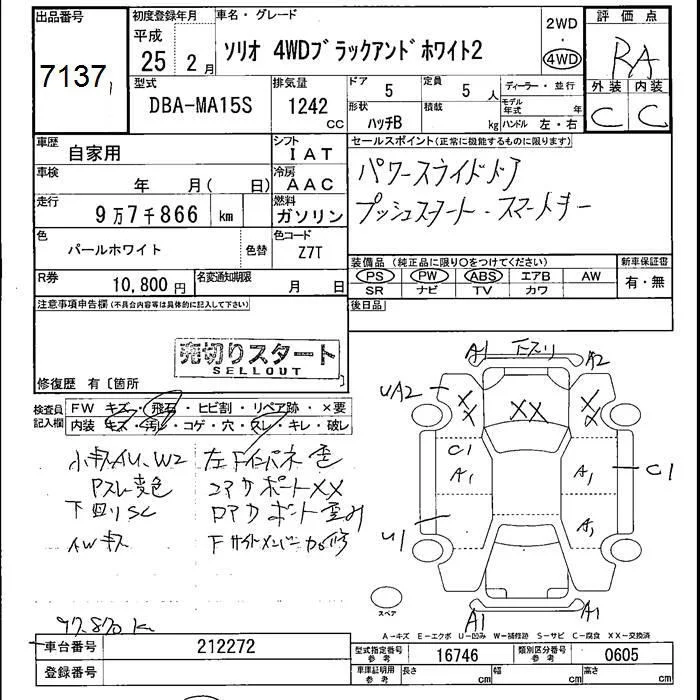 出品番号
7137
初度登録年月
平成
25 2月
車名・グレード
ソリオ 4WDブラックアンドホワイト2
2WD
・
4WD
評価点
RA
外装 内装
C C
型式
DBA-MA15S
排気量
1242
cc
ドア
5
定員
5 人
形状
ハッチB
積載
kg
ディーラー・並行
モデル年式 年
ハンドル 左・右
車歴
自家用
シフト
IAT
車検
年 月( 日)
冷房
AAC
走行
9万7千866 km
燃料
ガソリン
色
パールホワイト
色替
色コード
Z7T
R券
10,800円
名変通知期限
月 日
セールスポイント(正常に機能するものに限ります)
パワースライドドア
プッシュスタート・スマートキー
装備品(純正品に限り○をつけてください)
PS PW ABS エアB AW
SR ナビ TV カワ
新車保証書
有・無
後日品
注意事項申告欄(不具合内容等は具体的に記入して下さい)
売切りスタート
SELLOUT
修復歴 有〔箇所
検査員記入欄
FW キズ・飛石・ヒビ割・リペア跡・×要
内装 キズ・汚れ・コゲ・穴・スレ・キレ・破レ
小キズAU、W2
変色
下回りSC
AWキズ
コアサポートXX
97,870 K
A1 下スリ A2
UA2
XX XX XX
C1
A1 A1
C1
A1
U1
A1 A1
スペア
A-キズ E-エクボ U-凹み W-補修跡 S-サビ C-腐食 XX-交換済
車台番号 212272
登録番号
型式指定番号 参考 16746
類別区分番号 参考 0605
車庫証明用 参考
長さ cm
幅 cm
高さ cm